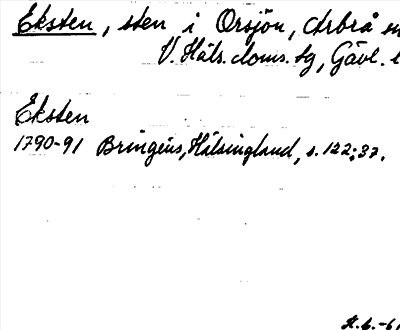 Eksten, sten i Orsjön, Arbrå
V. Häls. doms. tg, Gävl. l
Eksten
1790-91 Bringéus, Hälsingland, s. 122; 37.